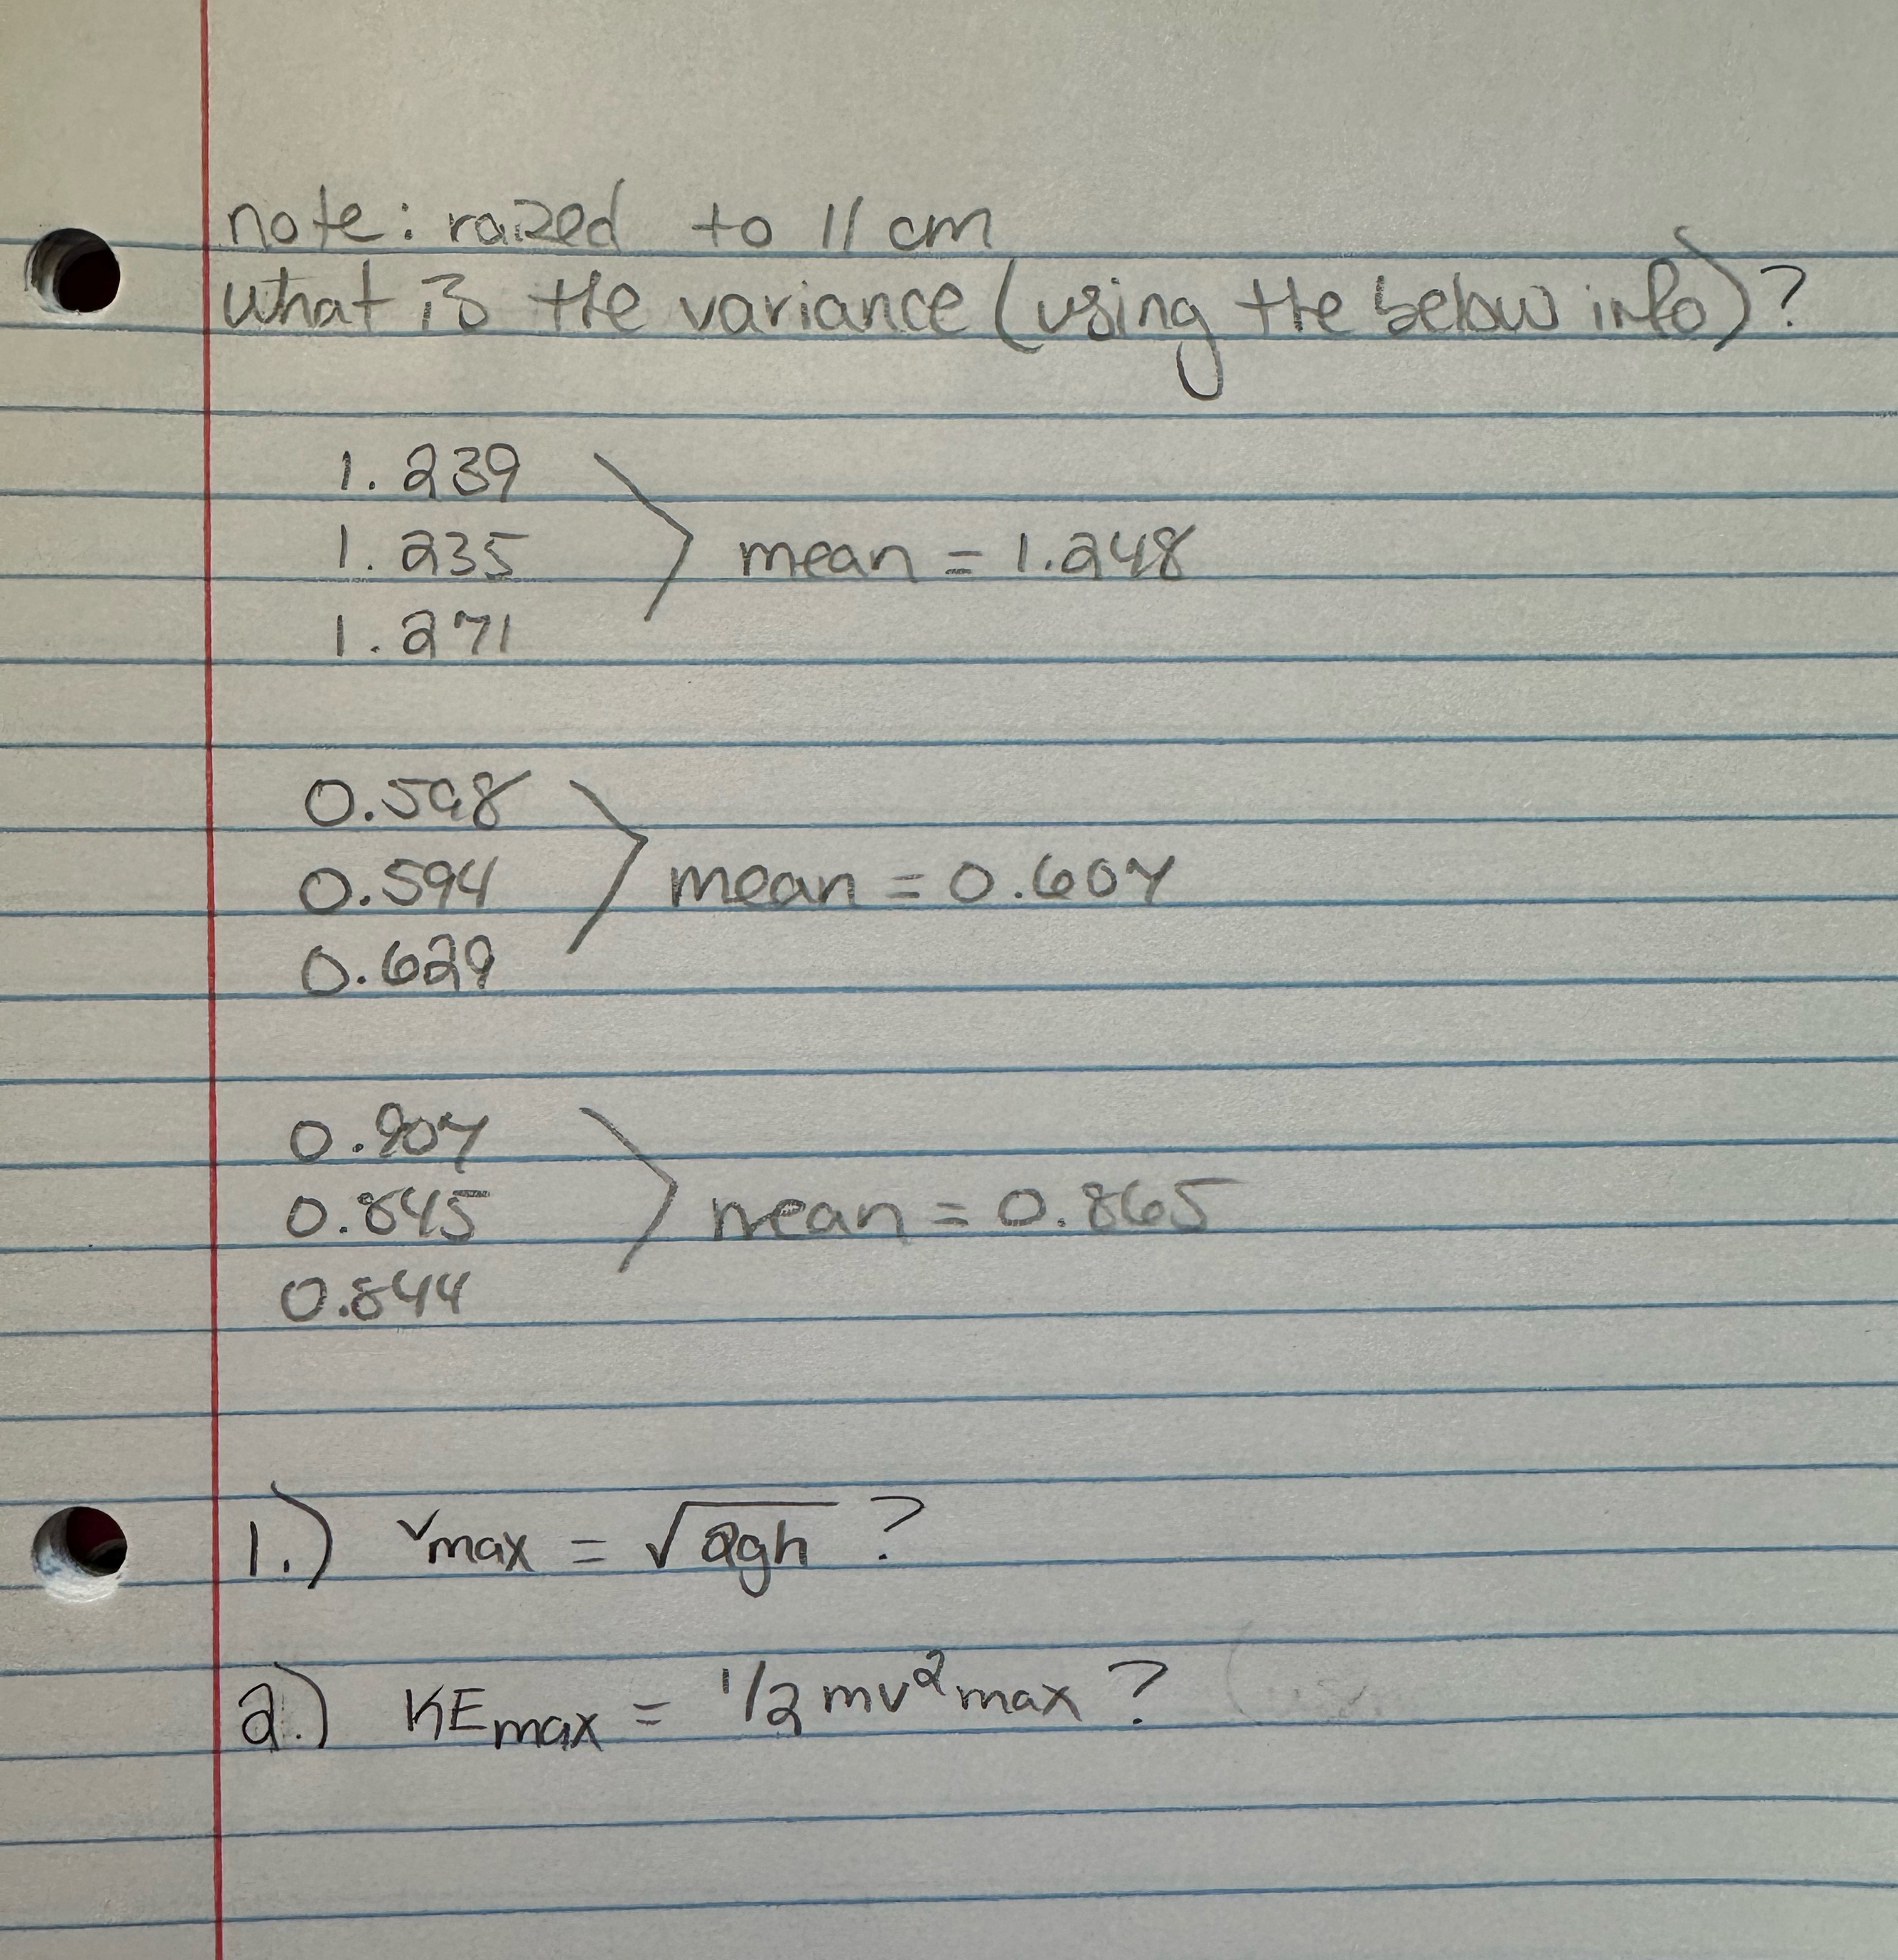 note: raized to 11 cm
what is the variance (using the below info)?
1.239
1.235
1.271
mean = 1.248
0.598
0.594
0.629
mean = 0.607
0.907
0.845
0.844
mean = 0.865
1.) vmax = √2gh ?
2.) KEmax = 1/2 mv²max ?